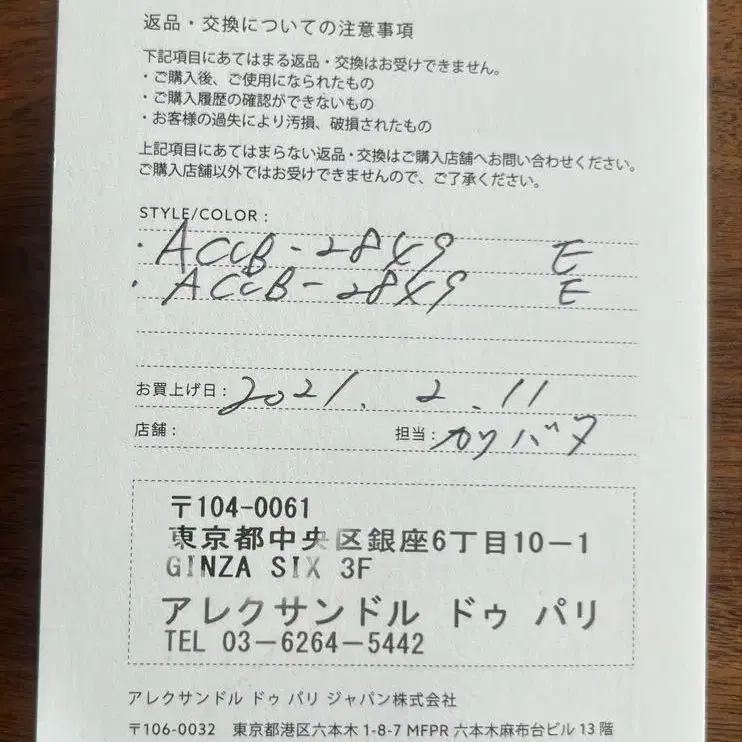 返品・交換についての注意事項
下記項目にあてはまる返品・交換はお受けできません。
・ご購入後、ご使用になられたもの
・ご購入履歴の確認ができないもの
・お客様の過失により汚損、破損されたもの
上記項目にあてはまらない返品・交換はご購入店舗へお問い合わせください。
ご購入店舗以外ではお受けできませんので、ご了承ください。
STYLE/COLOR :
・ACCB-2849 E
・ACCB-2849 E
お買上げ日 : 2021. 2. 11
店舗 : 担当 :
〒104-0061
東京都中央区銀座6丁目10-1
GINZA SIX 3F
アレクサンドル ドゥ パリ
TEL 03-6264-5442
アレクサンドル ドゥ パリ ジャパン株式会社
〒106-0032 東京都港区六本木 1-8-7 MFPR 六本木麻布台ビル 13 階